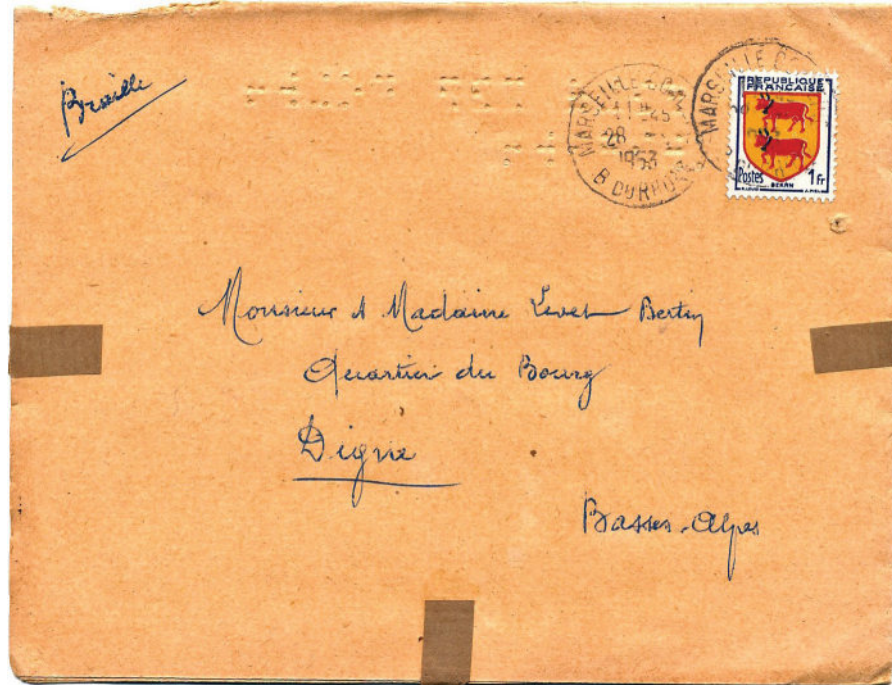 Braille
MARSEILLE
28
1953
B DU RHONE
MARSEILLE
REPUBLIQUE
FRANCAISE
Postes 1 Fr
BEARN
Monsieur & Madame Levet Bertin
Quartier du Bourg
Digne
Basses-Alpes